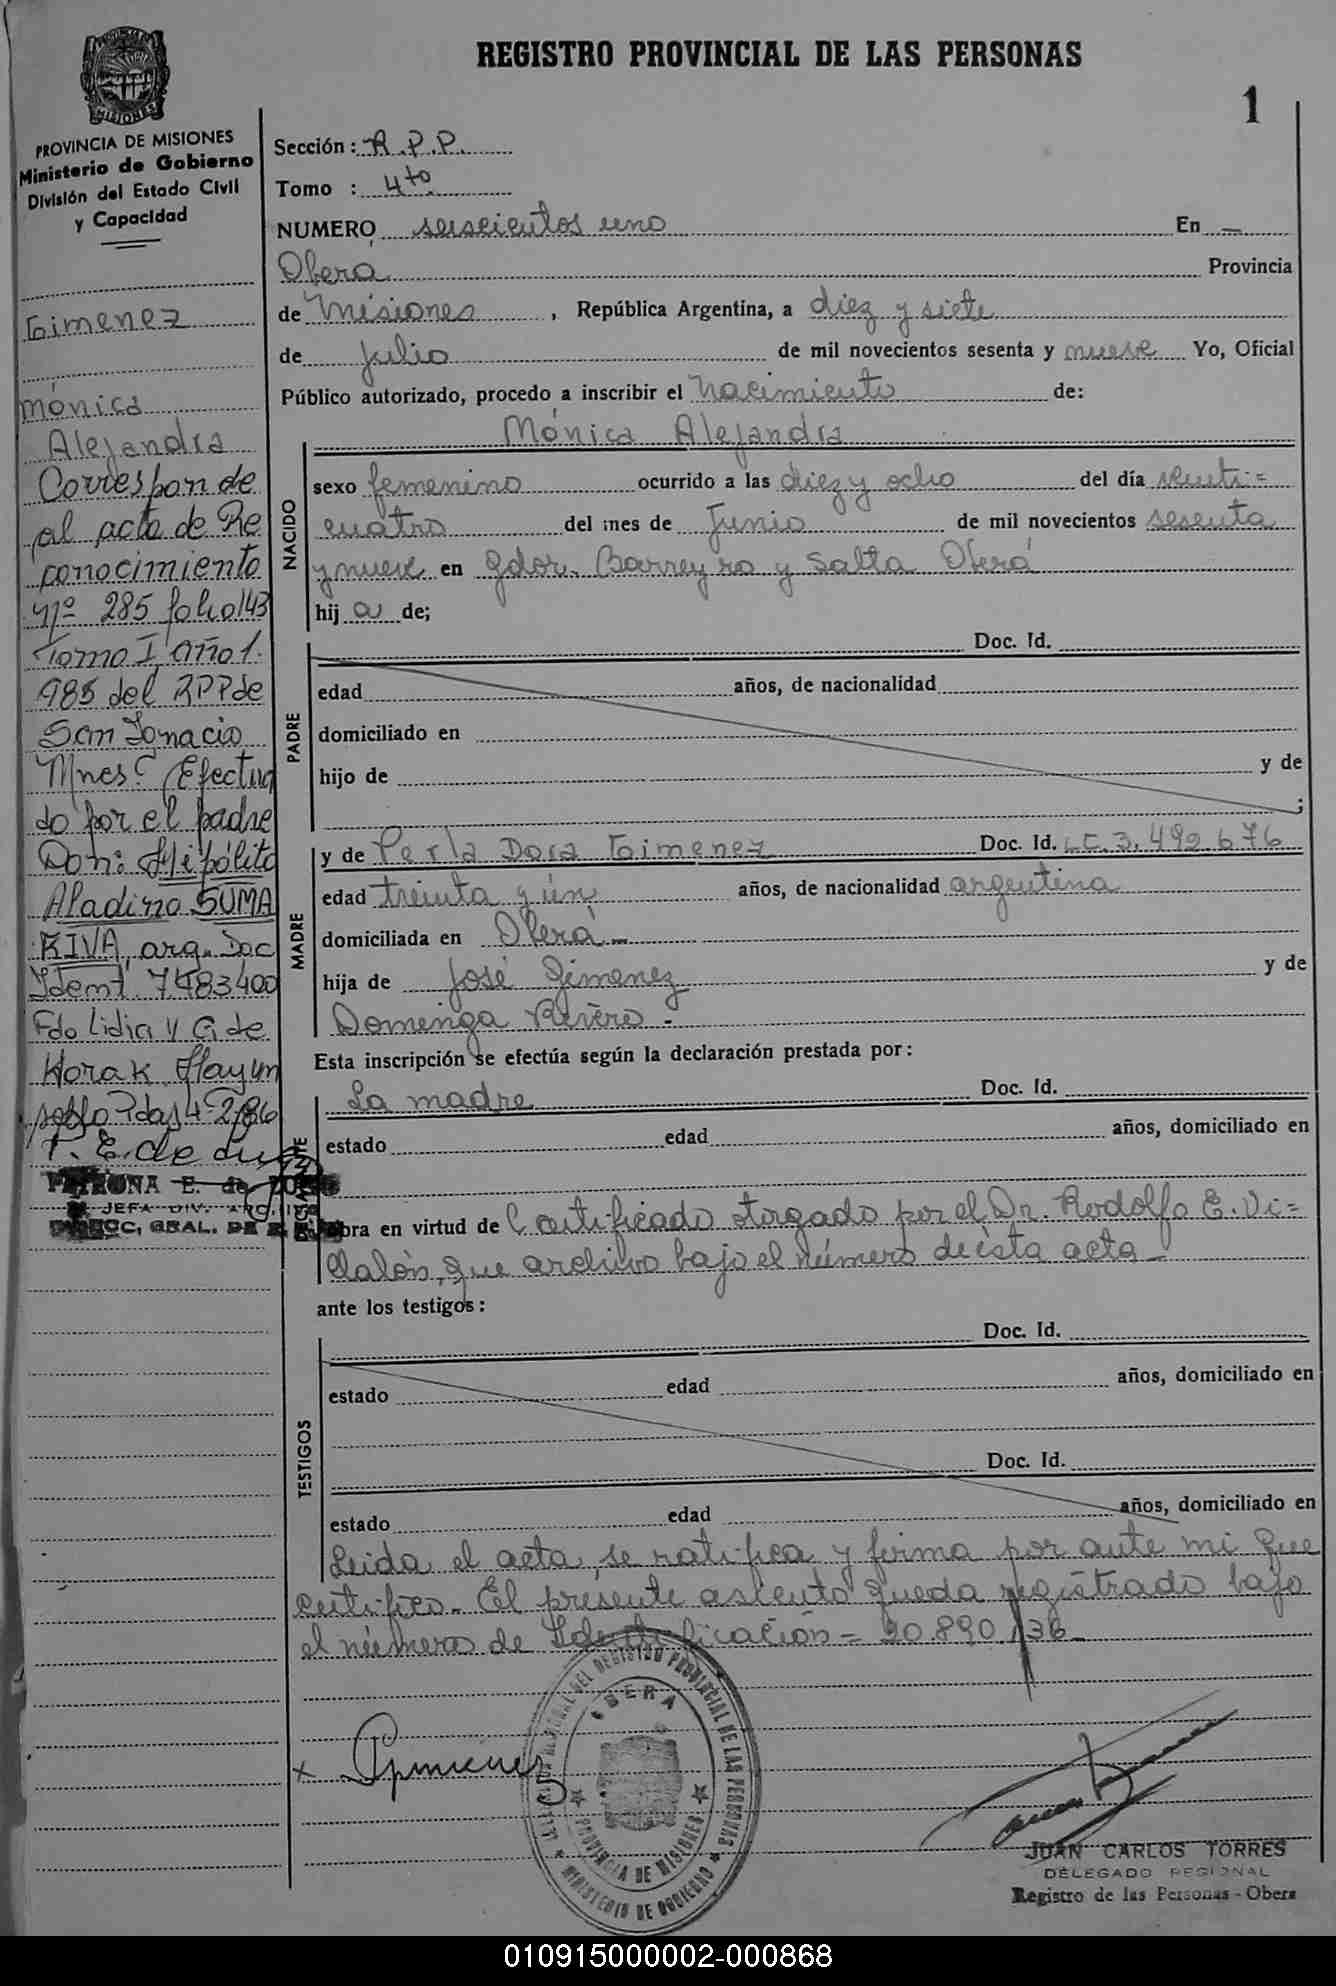 REGISTRO PROVINCIAL DE LAS PERSONAS
1
PROVINCIA DE MISIONES
Ministerio de Gobierno
División del Estado Civil
y Capacidad
Gimenez
Mónica
Alejandra
Corresponde
al acta de Re
conocimiento
Nº 285 folio 143
Tomo I, año 1.
985 del RPP de
San Ignacio
Mnes. Efectua
do por el padre
Don: Hipólito
Aladino SUMA
RIVA, arg. Doc
Ident. 7483400
Fdo Lidia V G de
Horak. Hay un
sello Pdas 4-2-86
P. E. de
PETRONA E. de
JEFA DIV. ARCHIVO
DIRECC. GRAL. DE
Sección : R.P.P.
Tomo : 4to.
NUMERO seiscientos uno En —
Oberá Provincia
de Misiones , República Argentina, a diez y siete
de Julio de mil novecientos sesenta y nueve Yo, Oficial
Público autorizado, procedo a inscribir el Nacimiento de:
Mónica Alejandra
NACIDO
sexo femenino ocurrido a las diez y ocho del día veinti=
cuatro del mes de Junio de mil novecientos sesenta
y nueve en Gdor. Barreyro y Salta Oberá
hij a de;
PADRE
Doc. Id.
edad años, de nacionalidad
domiciliado en
hijo de y de
;
MADRE
y de Perla Dora Gimenez Doc. Id. LC. 3.492.676
edad treinta y ún años, de nacionalidad argentina
domiciliada en Oberá
hija de José Gimenez y de
Dominga Rivero -
Esta inscripción se efectúa según la declaración prestada por:
La madre Doc. Id.
estado edad años, domiciliado en
obra en virtud de Certificado otorgado por el Dr. Rodolfo E. Vi=
llalón, que archivo bajo el número de ésta acta -
ante los testigos:
TESTIGOS
Doc. Id.
estado edad años, domiciliado en
Doc. Id.
estado edad años, domiciliado en
Leida el acta, se ratifica y firma por ante mi que
certifico. El presente asiento queda registrado bajo
el número de Identificación = 20.890/36
x PGimenez
OBERA
REGISTRO PROVINCIAL DE LAS PERSONAS
PROVINCIA DE MISIONES
MINISTERIO DE GOBIERNO
JUAN CARLOS TORRES
DELEGADO REGIONAL
Registro de las Personas - Obera
010915000002-000868